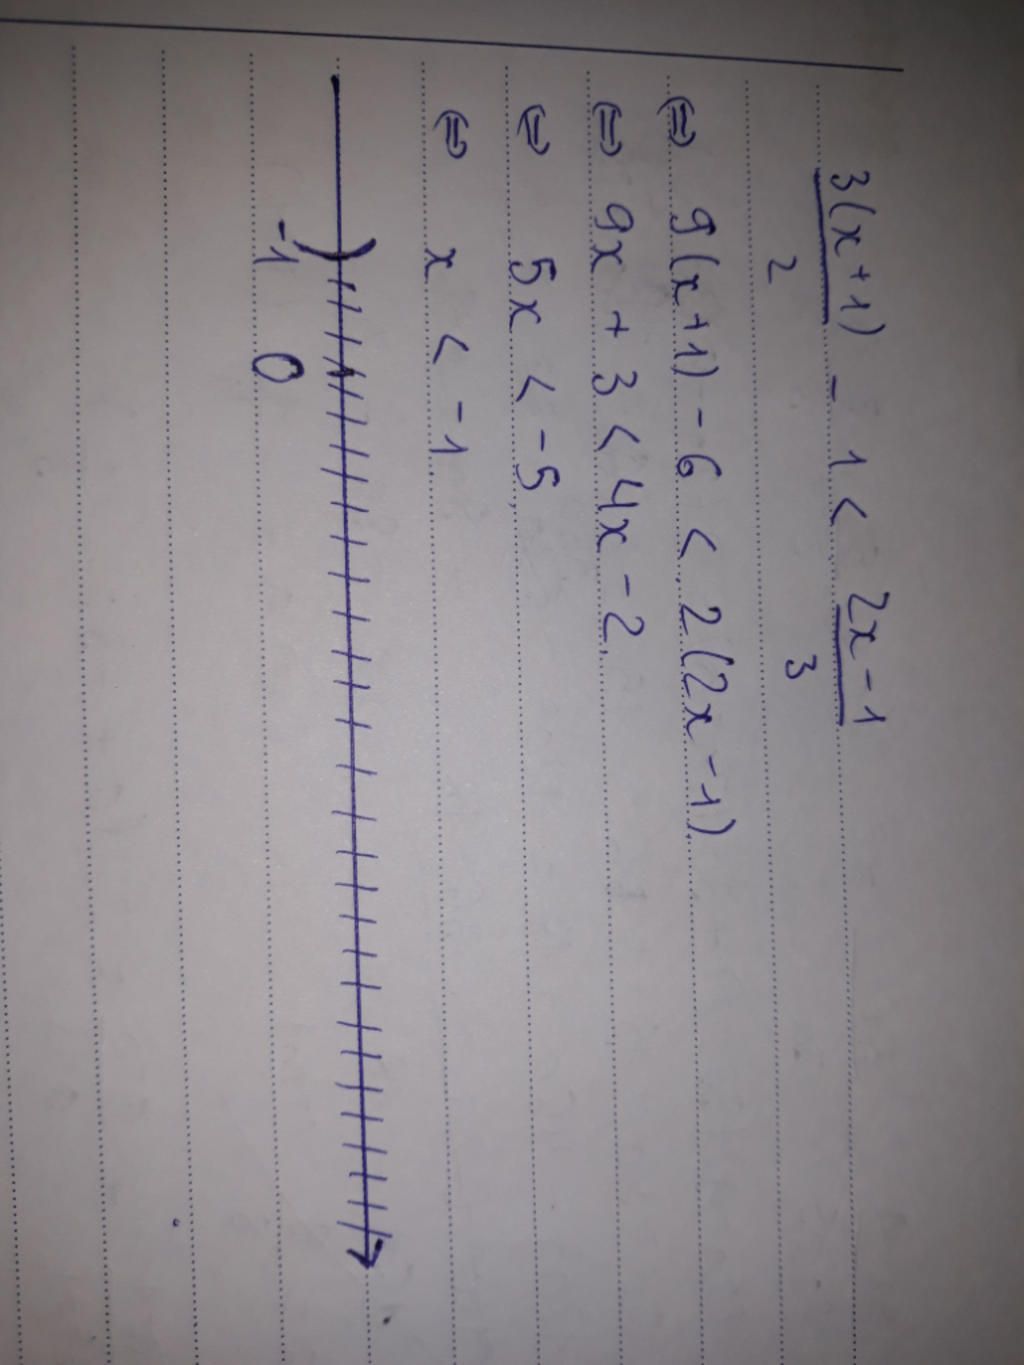 3(x+1)/2 - 1 < 2x-1/3
⇔ 9(x+1) - 6 < 2(2x-1)
⇔ 9x + 3 < 4x - 2
⇔ 5x < -5
⇔ x < -1
-1 0